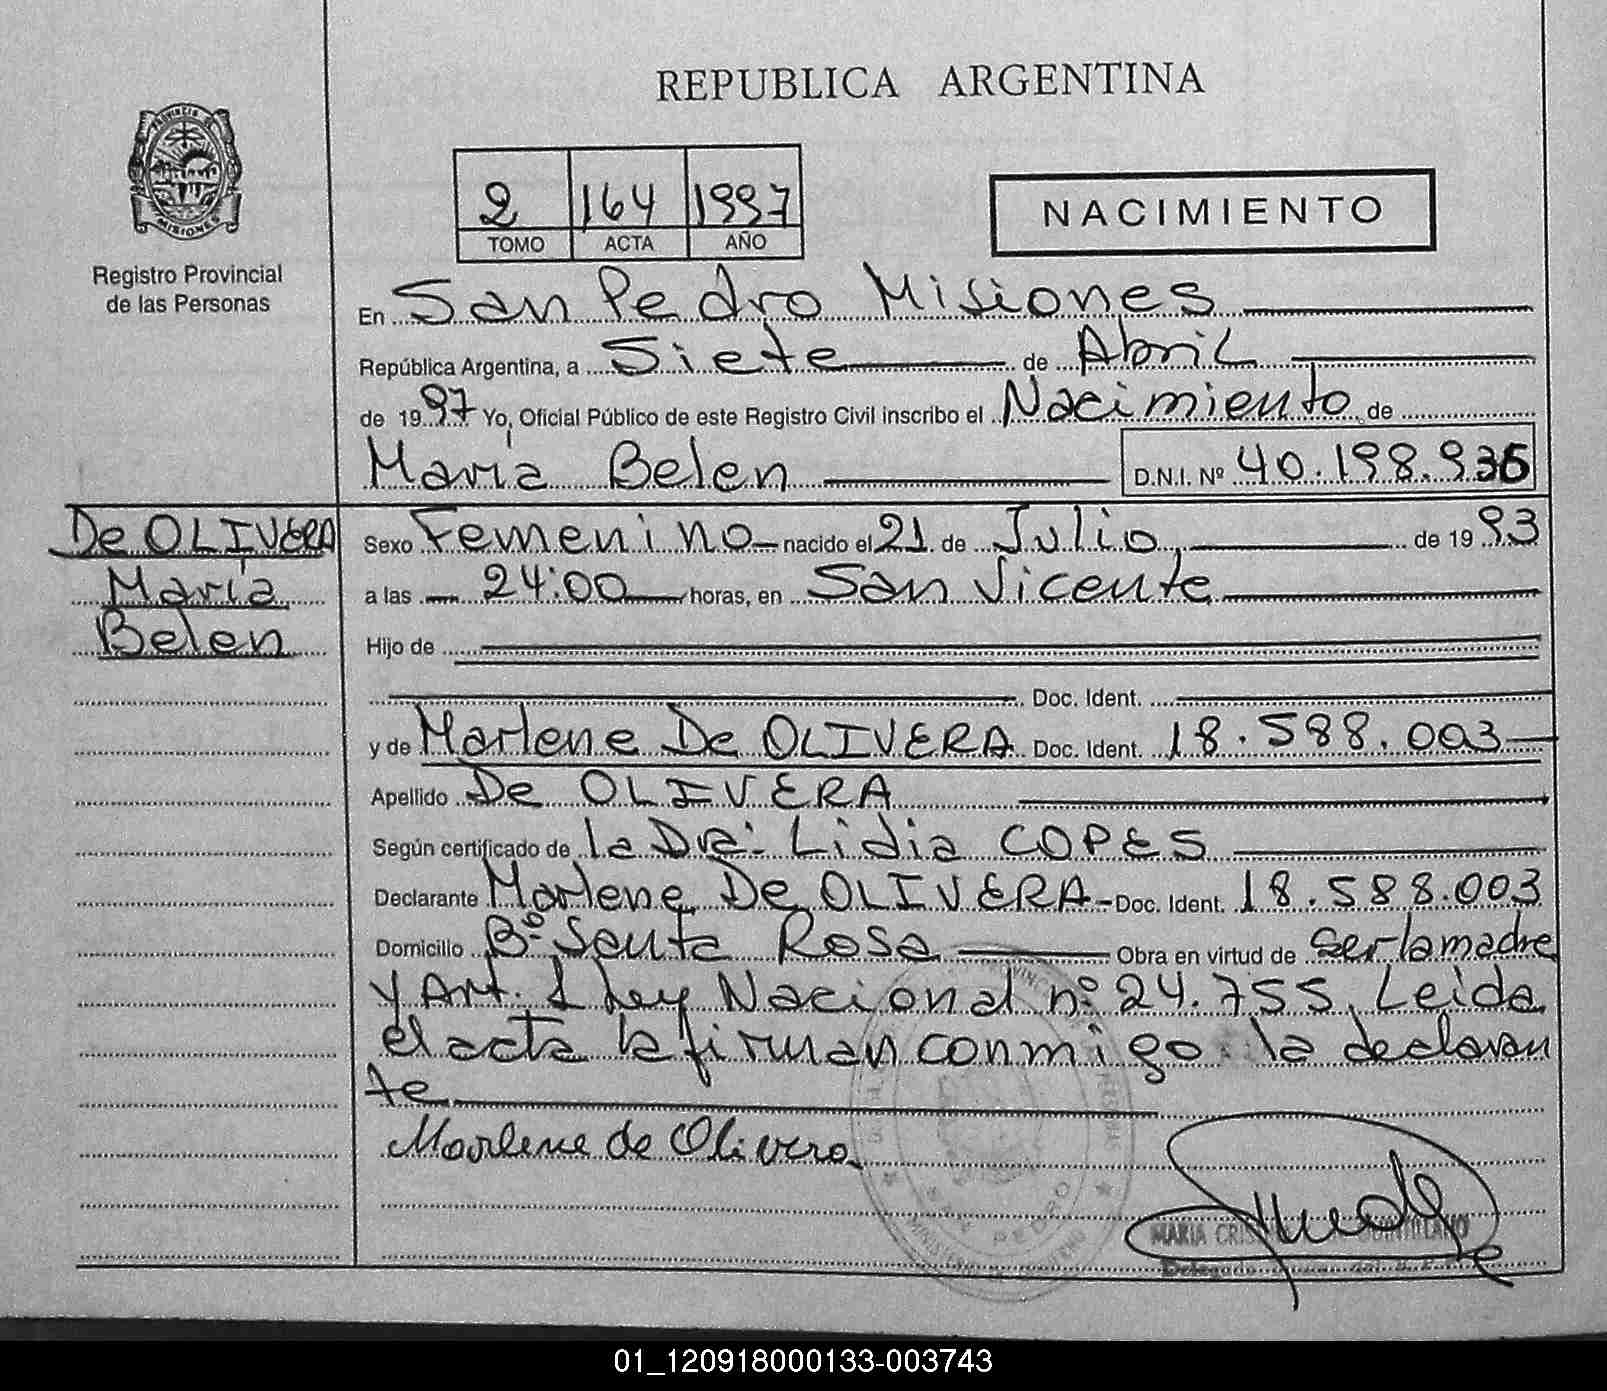 REPUBLICA ARGENTINA
PROVINCIA DE MISIONES
Registro Provincial
de las Personas
2 164 1997
TOMO ACTA AÑO
NACIMIENTO
En San Pedro Misiones
República Argentina, a Siete de Abril
de 1997 Yo, Oficial Público de este Registro Civil inscribo el Nacimiento de
María Belen D.N.I. Nº 40.198.936
De OLIVERA
María
Belen
Sexo Femenino nacido el 21 de Julio, de 1993
a las 24:00 horas, en San Vicente
Hijo de
Doc. Ident.
y de Marlene De OLIVERA Doc. Ident. 18.588.003
Apellido De OLIVERA
Según certificado de la Dra: Lidia COPES
Declarante Marlene De OLIVERA - Doc. Ident. 18.588.003
Domicilio Bº Santa Rosa Obra en virtud de ser la madre
y Art. 1 Ley Nacional nº 24.755. Leida
el acta la firman conmigo la declaran
te
Marlene de Olivera
MARIA QUINTILLANO
01_120918000133-003743